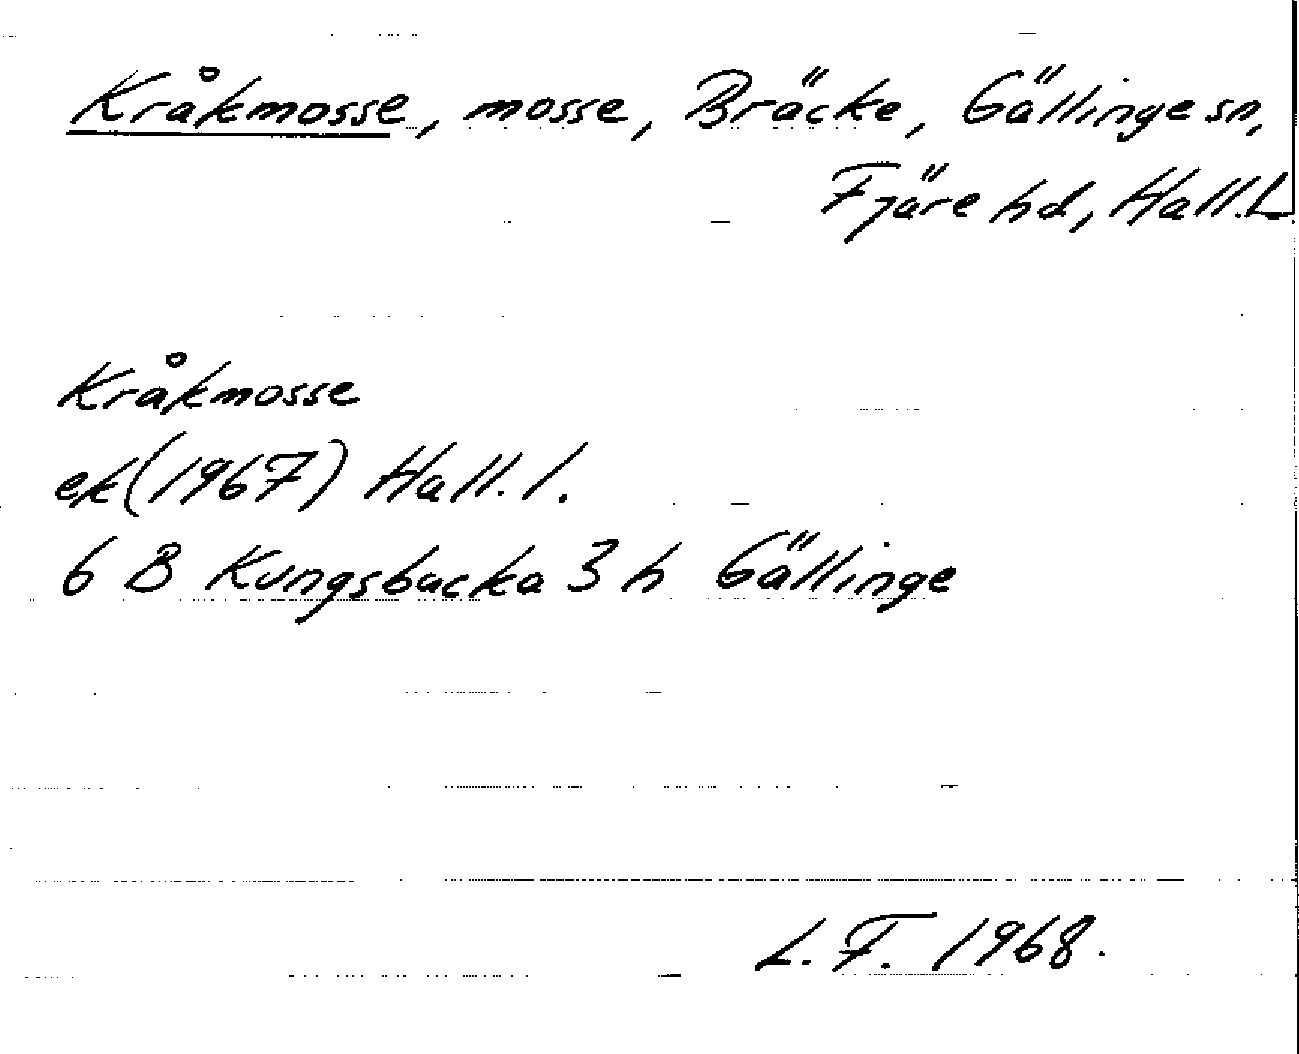 Kråkmosse, mosse, Bräcke, Gällinge sn,
Fjäre hd, Hall.L
Kråkmosse
ek (1967) Hall. l.
6 B Kungsbacka 3 h Gällinge
L. F. 1968.